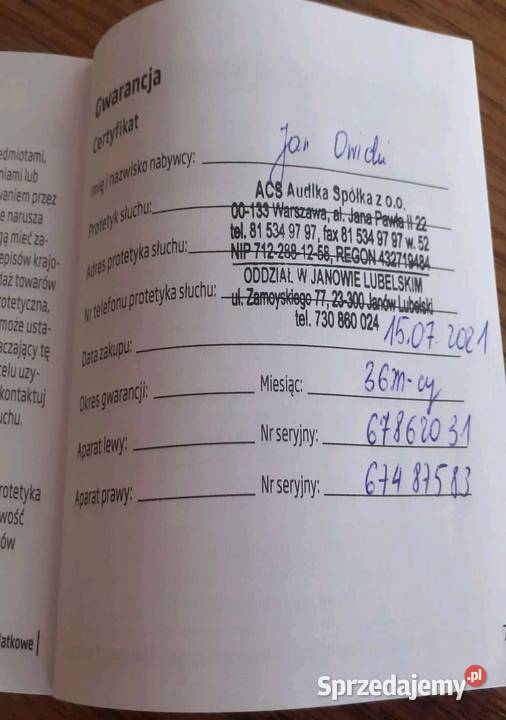 edmiotami,
niami lub
waniem przez
e narusza
gą mieć za-
episów krajo-
daż towarów
rotetyczna,
może usta-
aczający tę
celu uzy-
kontaktuj
uchu.
rotetyka
wość
ów
datkowe |
Gwarancja
Certyfikat
Imię i nazwisko nabywcy: Jan
Protetyk słuchu:
Adres protetyka słuchu:
Nr telefonu protetyka słuchu:
ACS Audika Spółka z o.o.
00-133 Warszawa, al. Jana Pawła II 22
tel. 81 534 97 97, fax 81 534 97 97 w. 52
NIP 712-288-12-58, REGON 432719484
ODDZIAŁ W JANOWIE LUBELSKIM
ul. Zamoyskiego 77, 23-300 Janów Lubelski
tel. 730 860 024
Data zakupu: 15.07.2021
Okres gwarancji: Miesiąc: 36 m-cy
Aparat lewy: Nr seryjny: 67862031
Aparat prawy: Nr seryjny: 67487583
7
Sprzedajemy.pl